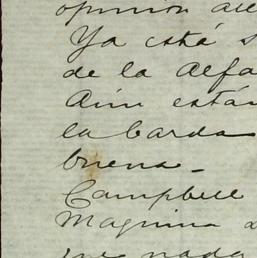 opinion
Ya está s
de la Alfa
Aún están
la barda
buena_
Campbell
Maquina
que nada